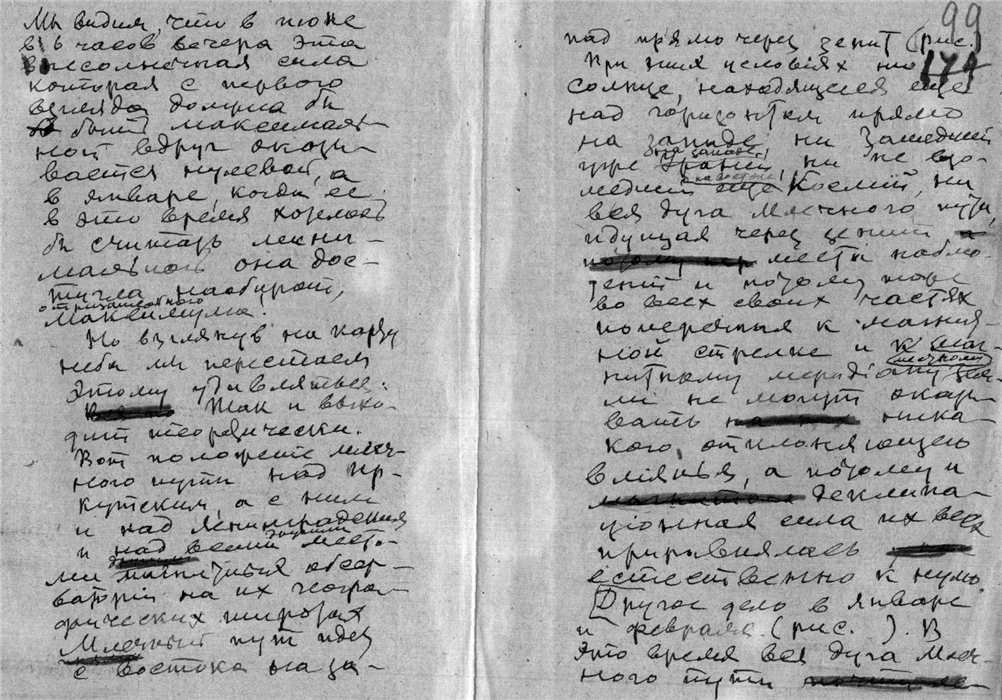 Мы видим, что в июне
в 6 часов вечера эта
высолнечная сила
которая с первого
взгляда должна бы
быть максималь-
ной вдруг оказы-
вается нулевой, а
в январе, когда ее
в это время хотелось
бы считать мени-
мальной она дос-
тигла наоборот,
отрицательного
максимума.
Но взглянув на карту
неба мы перестаем
этому удивляться.
Так и выхо-
дит теоретически.
Вот положение млеч-
ного пути над Ир-
кутском, а с ним
и над Ленинградским
и над всеми другими места-
ми магнитных обсер-
ваторий на их геогра-
фических широтах
Млечный путь идет
с востока на за-
99
174
пад прямо через зенит (рис.)
При этих условиях ни
солнце, находящееся еще
над горизонтом прямо
на западе, ни зашедший
уже на западе Уран, ни не взо-
шедший еще на востоке, Космий, ни
вся дуга Млечного пути,
идущая через зенит
места наблю-
дений и потому тоже
во всех своих частях
поперечная к магнит-
ной стрелке и к маг-
нитному меридиану зем-
ли не могут оказы-
вать ника-
кого, отклоняющего
влияния, а потому и
деклина-
ционная сила их всех
приравнялась
естественно к нулю.
Другое дело в январе
и феврале (рис. ). В
это время вся дуга Млеч-
ного пути